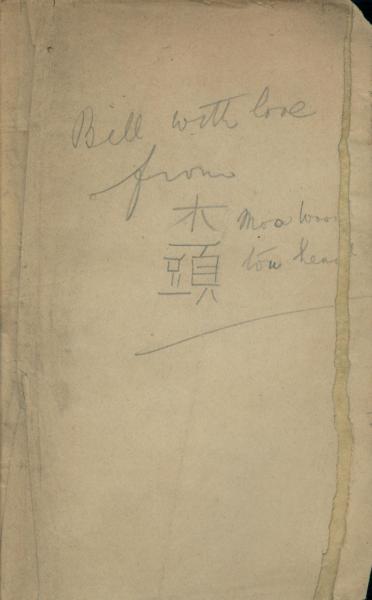 Bill with love
from
木 moa wood
頭 tou head